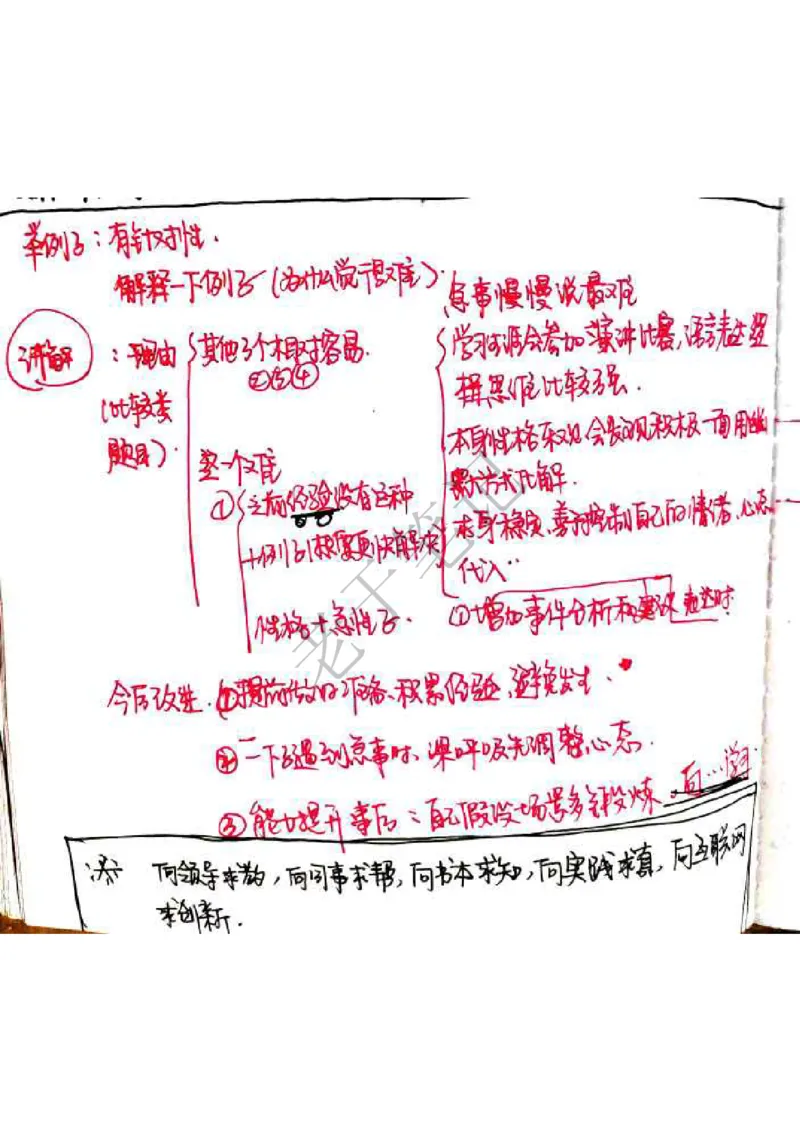 举例子：有针对性．
解释一下例子（为什么觉得很难）
急事慢慢说最难
讲解：理由
（比较类
题目）
其他3个相对容易．
②③④
学习时候会参加演讲比赛，语言表达逻
辑思维比较强．
本身性格乐观，会表现积极一面用幽
默方式化解．
本身稳定，善于控制自己的情绪、心态
代入
第一个难
①之前经验没有这种
+例子（想要更快解决
性格+急性子．
①增加事件分析和 表达时
今后改进．①提前做好准备、积累经验，避免发生．
②一下子遇到急事时、深呼吸先调整心态．
③能力提升事后：自己假设场景多锻炼．向…学习
※ 向领导求教，向同事求帮，向书本求知，向实践求真，向互联网
求创新．
老干笔记